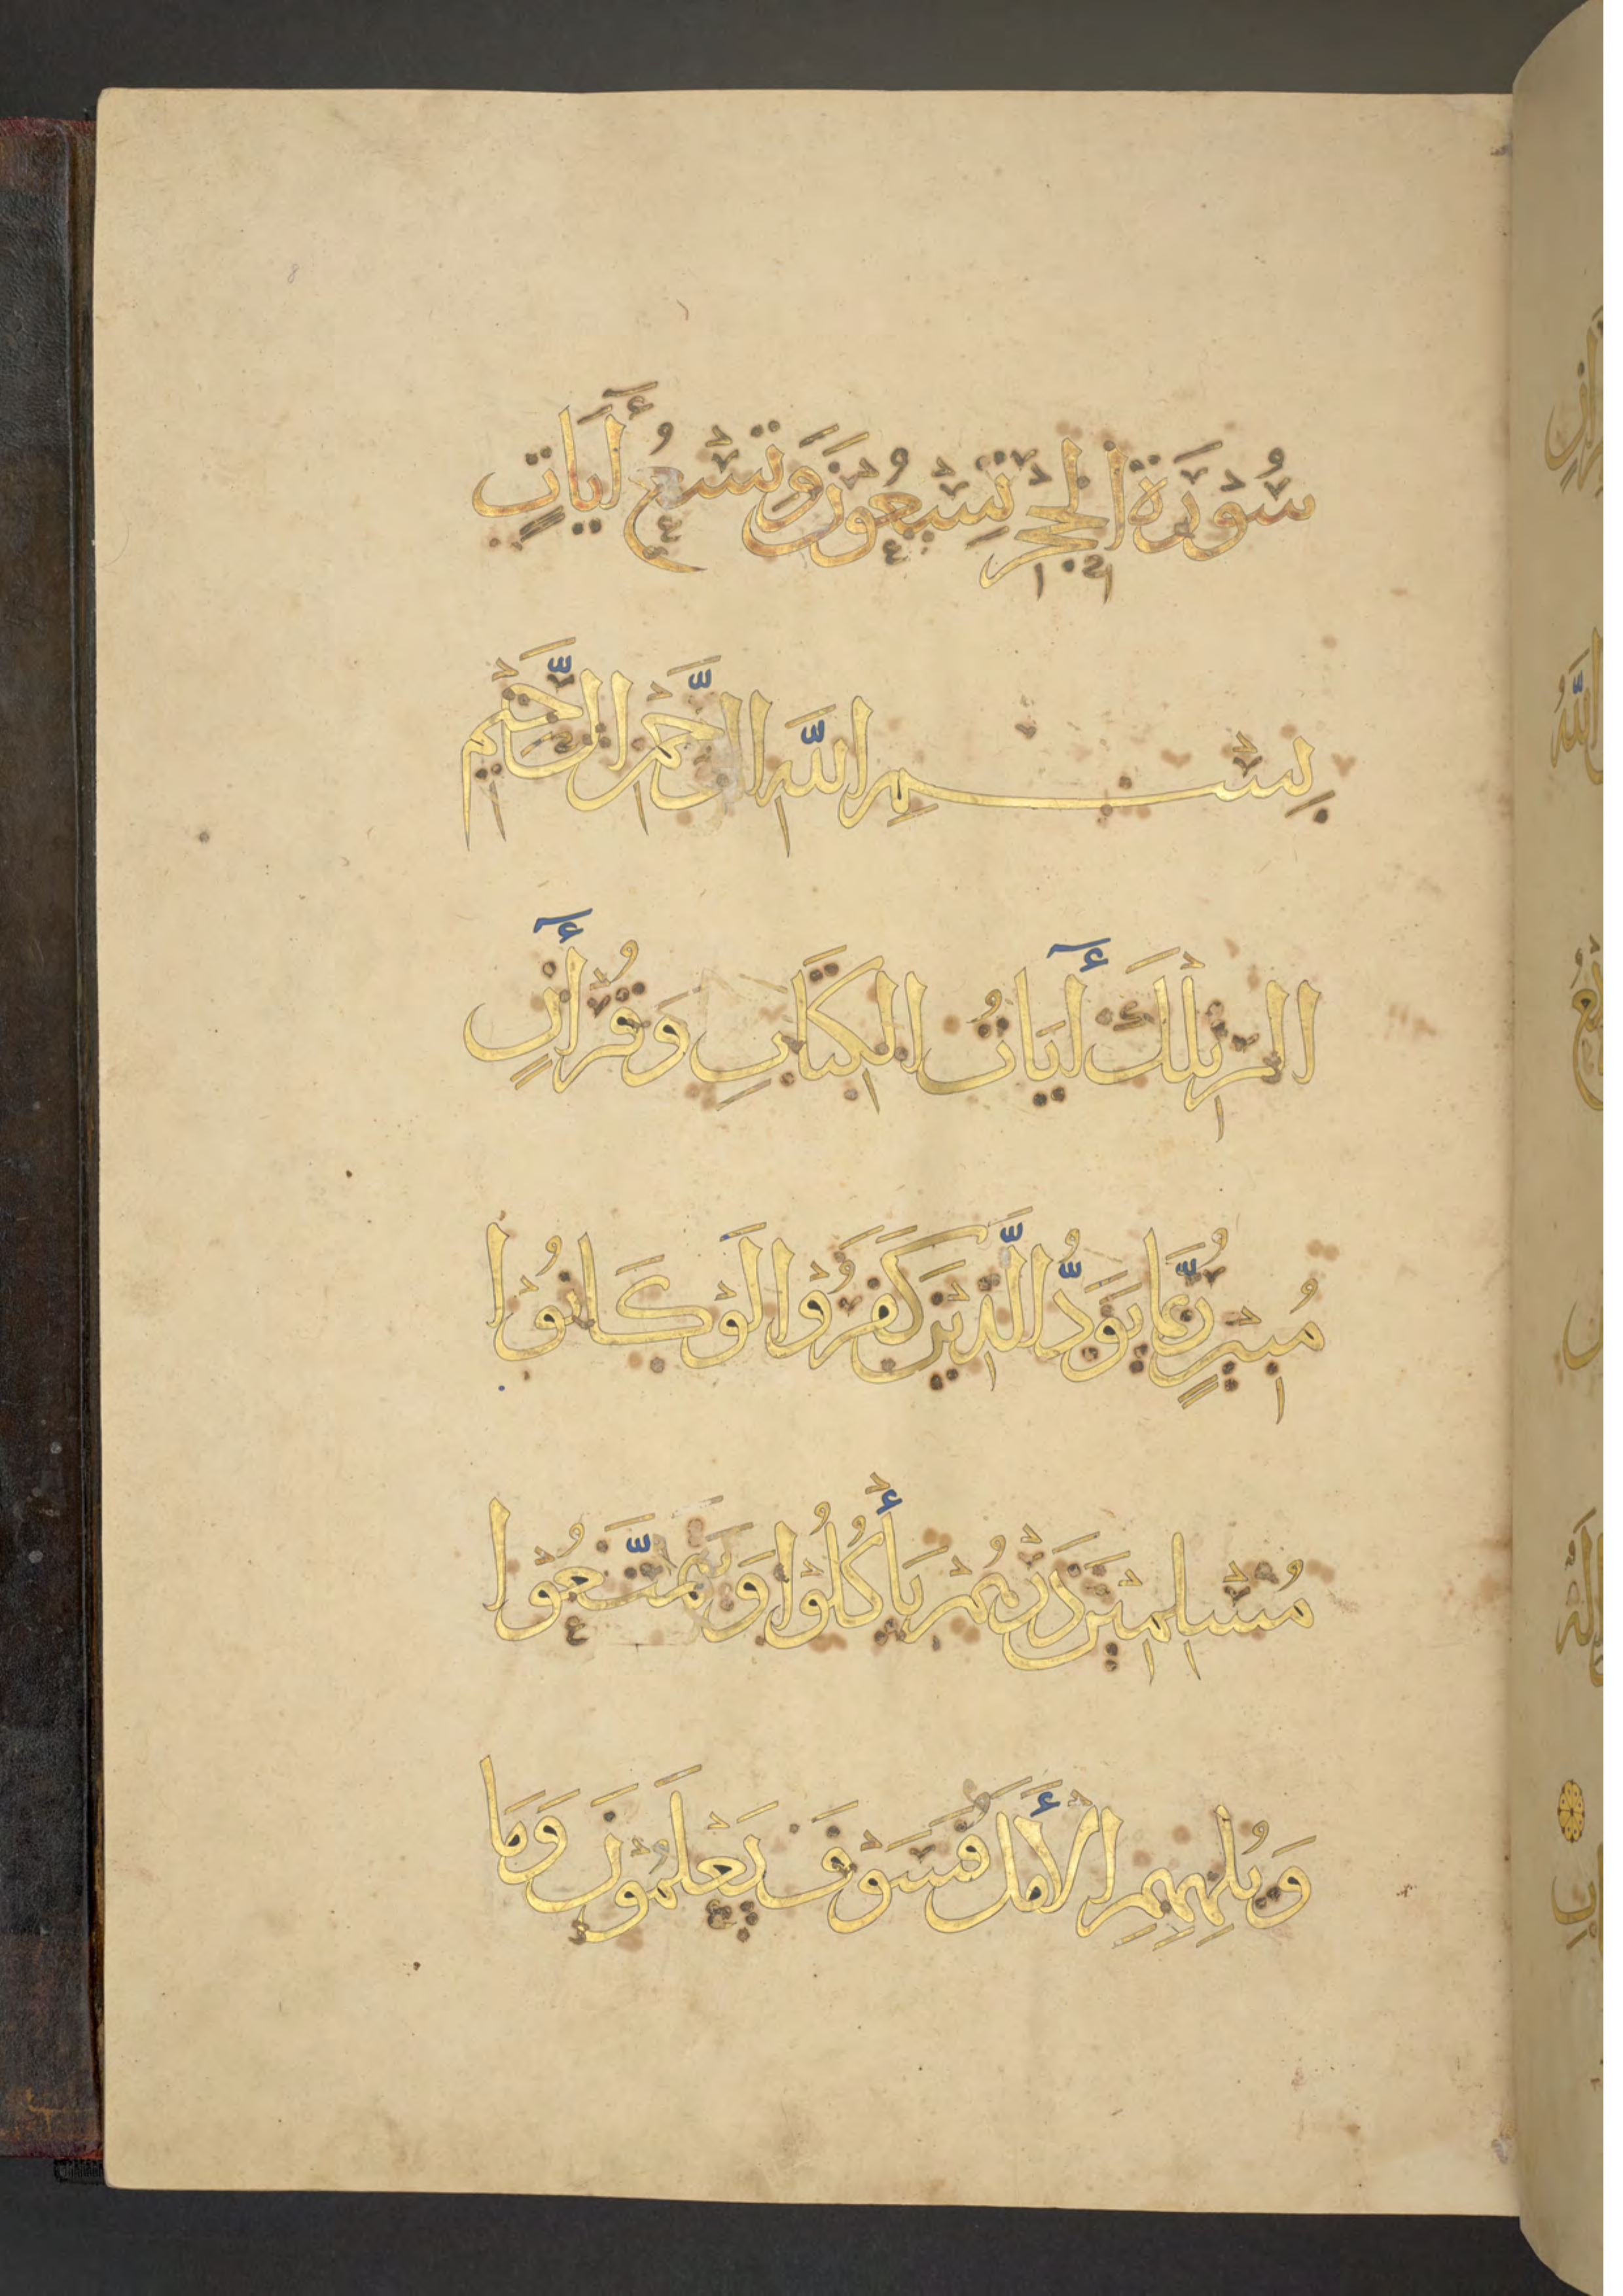 سُوْرَةُ الْحِجْرِ تِسْعُوْنَ وَتِسْعُ أٓيَاتٍ
بِسْمِ اللَّهِ الرَّحْمٰنِ الرَّحِيْمِ
الر تِلْكَ أٓيَاتُ الْكِتَابِ وَقُرْأٓنٍ
مُبِيْنٍ رُّبَمَا يَوَدُّ الَّذِيْنَ كَفَرُوْا لَوْ كَانُوْا
مُسْلِمِيْنَ ذَرْهُمْ يَأْكُلُوْا وَيَتَمَتَّعُوْا
وَيُلْهِهِمِ الْأَمَلُ فَسَوْفَ يَعْلَمُوْنَ وَمَا